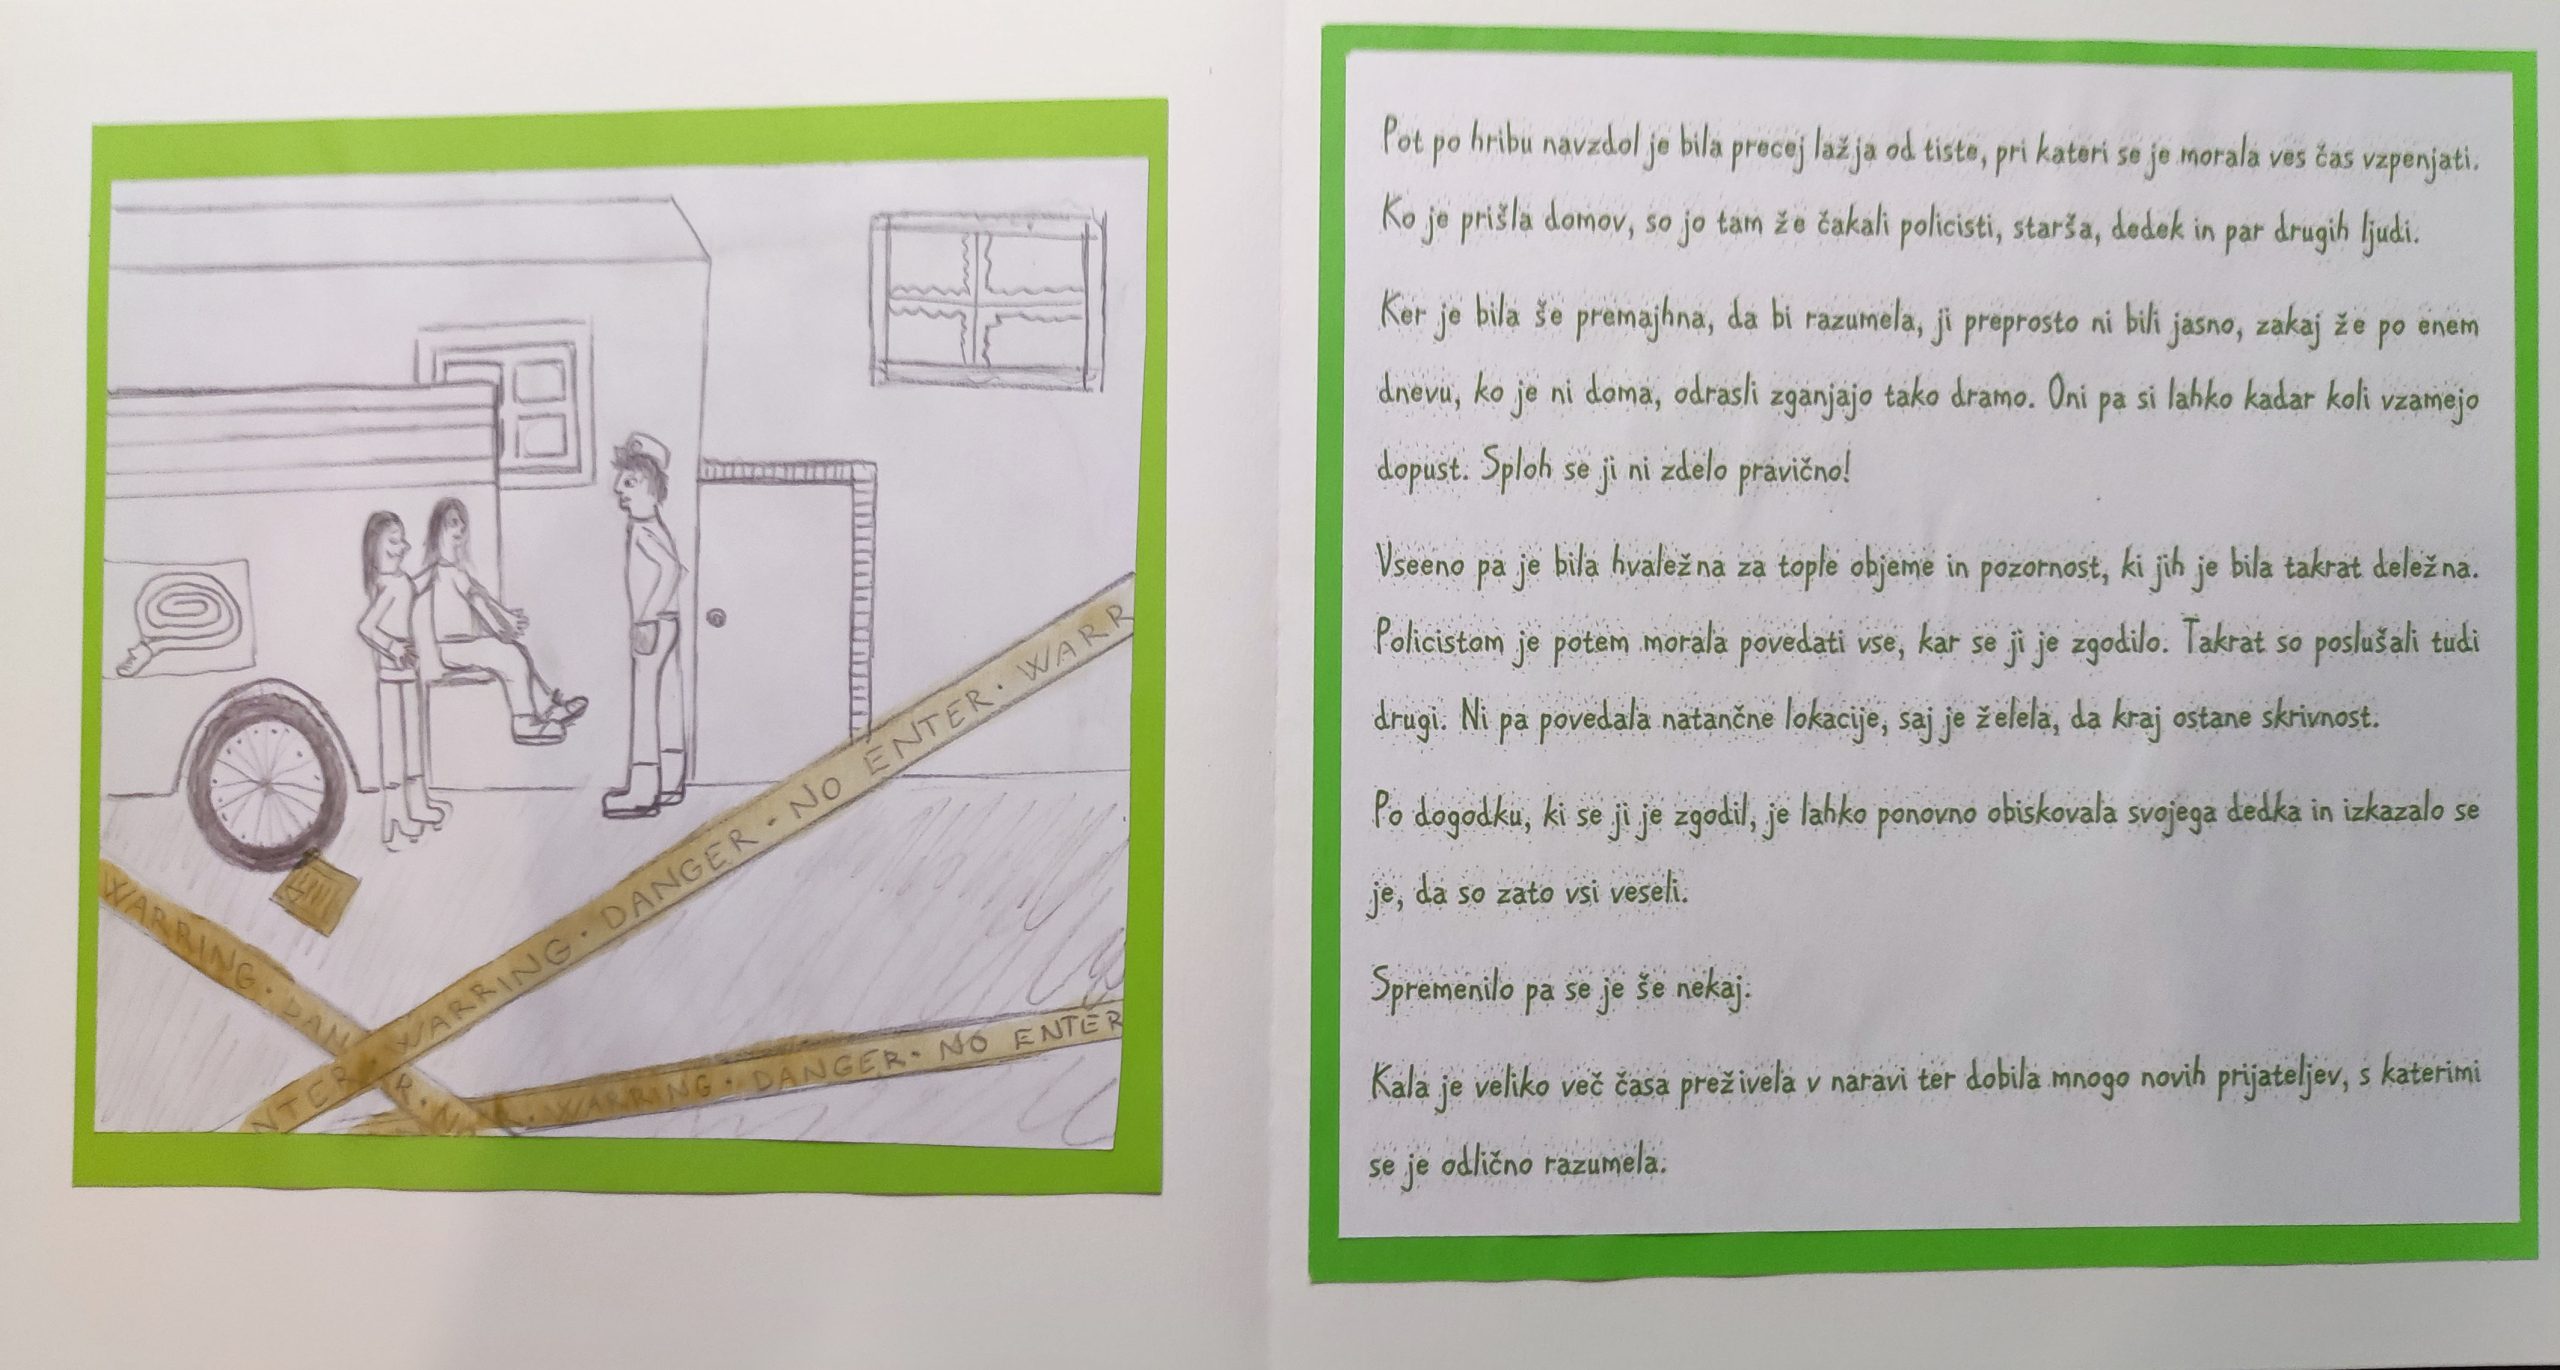 WARR
NO ENTER
DANGER
WARRING
NTER
WARRING · DAN R · N
WARRING · DANGER · NO ENTER
Pot po hribu navzdol je bila precej lažja od tiste, pri kateri se je morala ves čas vzpenjati.
Ko je prišla domov, so jo tam že čakali policisti, starša, dedek in par drugih ljudi.
Ker je bila še premajhna, da bi razumela, ji preprosto ni bili jasno, zakaj že po enem
dnevu, ko je ni doma, odrasli zganjajo tako dramo. Oni pa si lahko kadar koli vzamejo
dopust. Sploh se ji ni zdelo pravično!
Vseeno pa je bila hvaležna za tople objeme in pozornost, ki jih je bila takrat deležna.
Policistom je potem morala povedati vse, kar se ji je zgodilo. Takrat so poslušali tudi
drugi. Ni pa povedala natančne lokacije, saj je želela, da kraj ostane skrivnost.
Po dogodku, ki se ji je zgodil, je lahko ponovno obiskovala svojega dedka in izkazalo se
je, da so zato vsi veseli.
Spremenilo pa se je še nekaj:
Kala je veliko več časa preživela v naravi ter dobila mnogo novih prijateljev, s katerimi
se je odlično razumela.